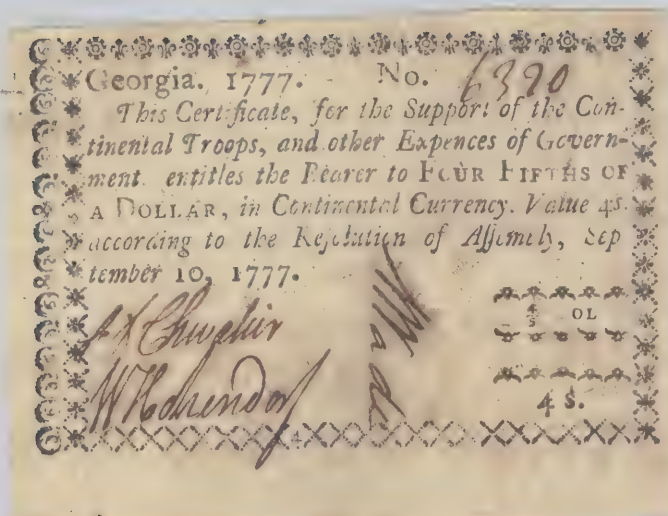 Georgia. 1777. No. 6390
This Certificate, for the Support of the Con-
tinental Troops, and other Expences of Govern-
ment. entitles the Bearer to FOUR FIFTHS OF
A DOLLAR, in Continental Currency. Value 4s.
according to the Resolution of Assembly, Sep
tember 10, 1777.
Wade
4/5 OL
4 S.